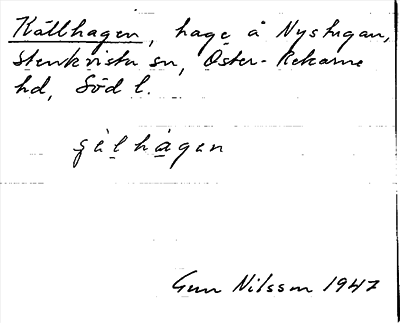 Källhagen, hage å Nystugan,
Stenkvista sn, Öster-Rekarne
hd, Södl.
gälhagen
Gun Nilsson 1947